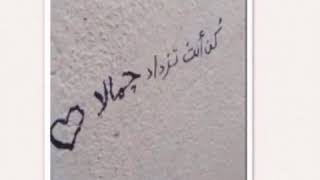 كُن أنت تزداد جمالا